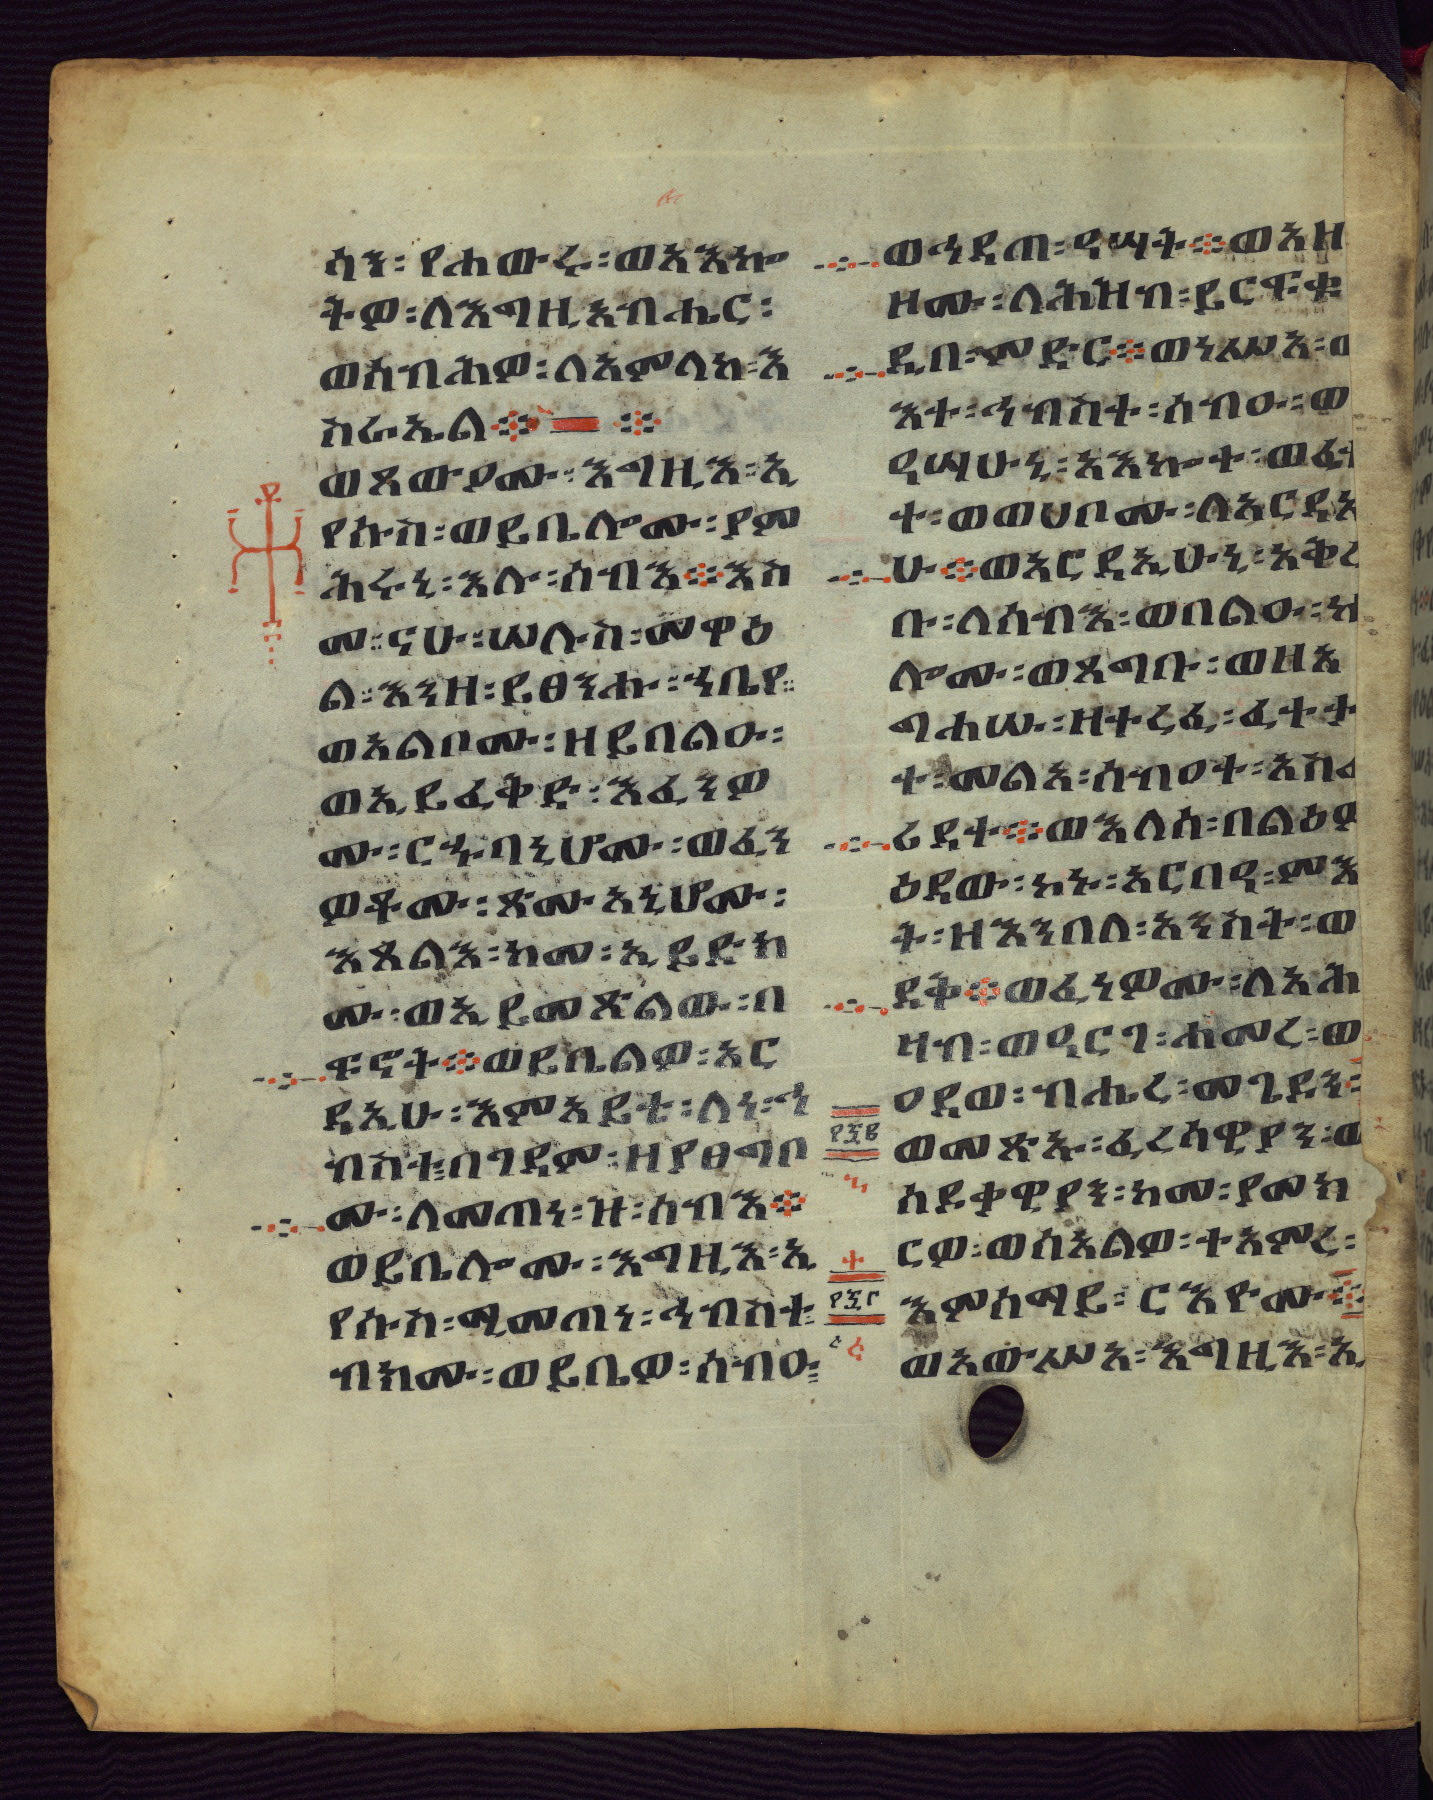 ሳን፡ የሐውሩ፡ ወአእኰ
ትዎ፡ ለእግዚአብሔር፡
ወሰብሕዎ፡ ለአምላከ፡ እ
ስራኤል፨
ወጸውዖሙ፡ እግዚእ፡ ኢ
የሱስ፡ ወይቤሎሙ፡ ያም
ሕሩኒ፡ እሉ፡ ሰብእ፨ እስ
መ፡ ናሁ፡ ሠሉስ፡ መዋዕ
ል፡ እንዘ፡ ይፀንሑ፡ ኀቤየ፡
ወአልቦሙ፡ ዘይበልዑ፡
ወኢይፈቅድ፡ እፈንዎ
ሙ፡ ርኁባኒሆሙ፡ ወፈን
ዎቶሙ፡ ጽሙአኒሆሙ፡
እጸልእ፡ ከመ፡ ኢይድክ
ሙ፡ ወኢይመጽልው፡ በ
ፍኖት፨ ወይቤልዎ፡ አር
ዳኢሁ፡ እምአይቴ፡ ለነ፡ ኀ
ብስተ፡ በገዳም፡ ዘያፀግቦ
ሙ፡ ለመጠነ፡ ዙ፡ ሰብእ፨
ወይቤሎሙ፡ እግዚእ፡ ኢ
የሱስ፡ ሚመጠነ፡ ኀብስተ፡
ብክሙ፡ ወይቤዎ፡ ሰብዑ፡
ወኅዳጠ፡ ዓሣት፨ ወአዘ
ዘሙ፡ ለሕዝብ፡ ይርፍቁ
ዲበ፡ ምድር፨ ወነሥአ፡ ወ
እተ፡ ኅብስተ፡ ሰብዑ፡ ወ
ዓሣሁኒ፡ አእኰተ፡ ወፈተ
ተ፡ ወወሀቦሙ፡ ለአርዳኢ
ሁ፨ ወአርዳኢሁኒ፡ አቅረ
ቡ፡ ለሰብእ፡ ወበልዑ፡ ኵ
ሎሙ፡ ወጸግቡ፡ ወዘአ
ግሐሡ፡ ዘተረፈ፡ ፈተታ
ተ፡ መልአ፡ ሰብዐተ፡ አስፈ
ሬዳተ፨ ወእለሰ፡ በልዕዎ
ዕደው፡ ኮኑ፡ አርባዓ፡ ምእ
ት፡ ዘእንበለ፡ አንስት፡ ወ
ደቅ፨ ወፈነዎሙ፡ ለአሕ
ዛብ፡ ወዓርገ፡ ሐመረ፡ ወ
ዐደወ፡ ብሔረ፡ መጌዶን፡
፻፷፪
ወመጽኡ፡ ፈረሳዊያን፡ ወ
ሰዶቃዊያን፡ ከመ፡ ያመክ
ርዎ፡ ወሰአልዎ፡ ተአምረ፡
፻፷፫
እምሰማይ፡ ርእዮሙ፨
ወአውሥአ፡ እግዚእ፡ ኢ